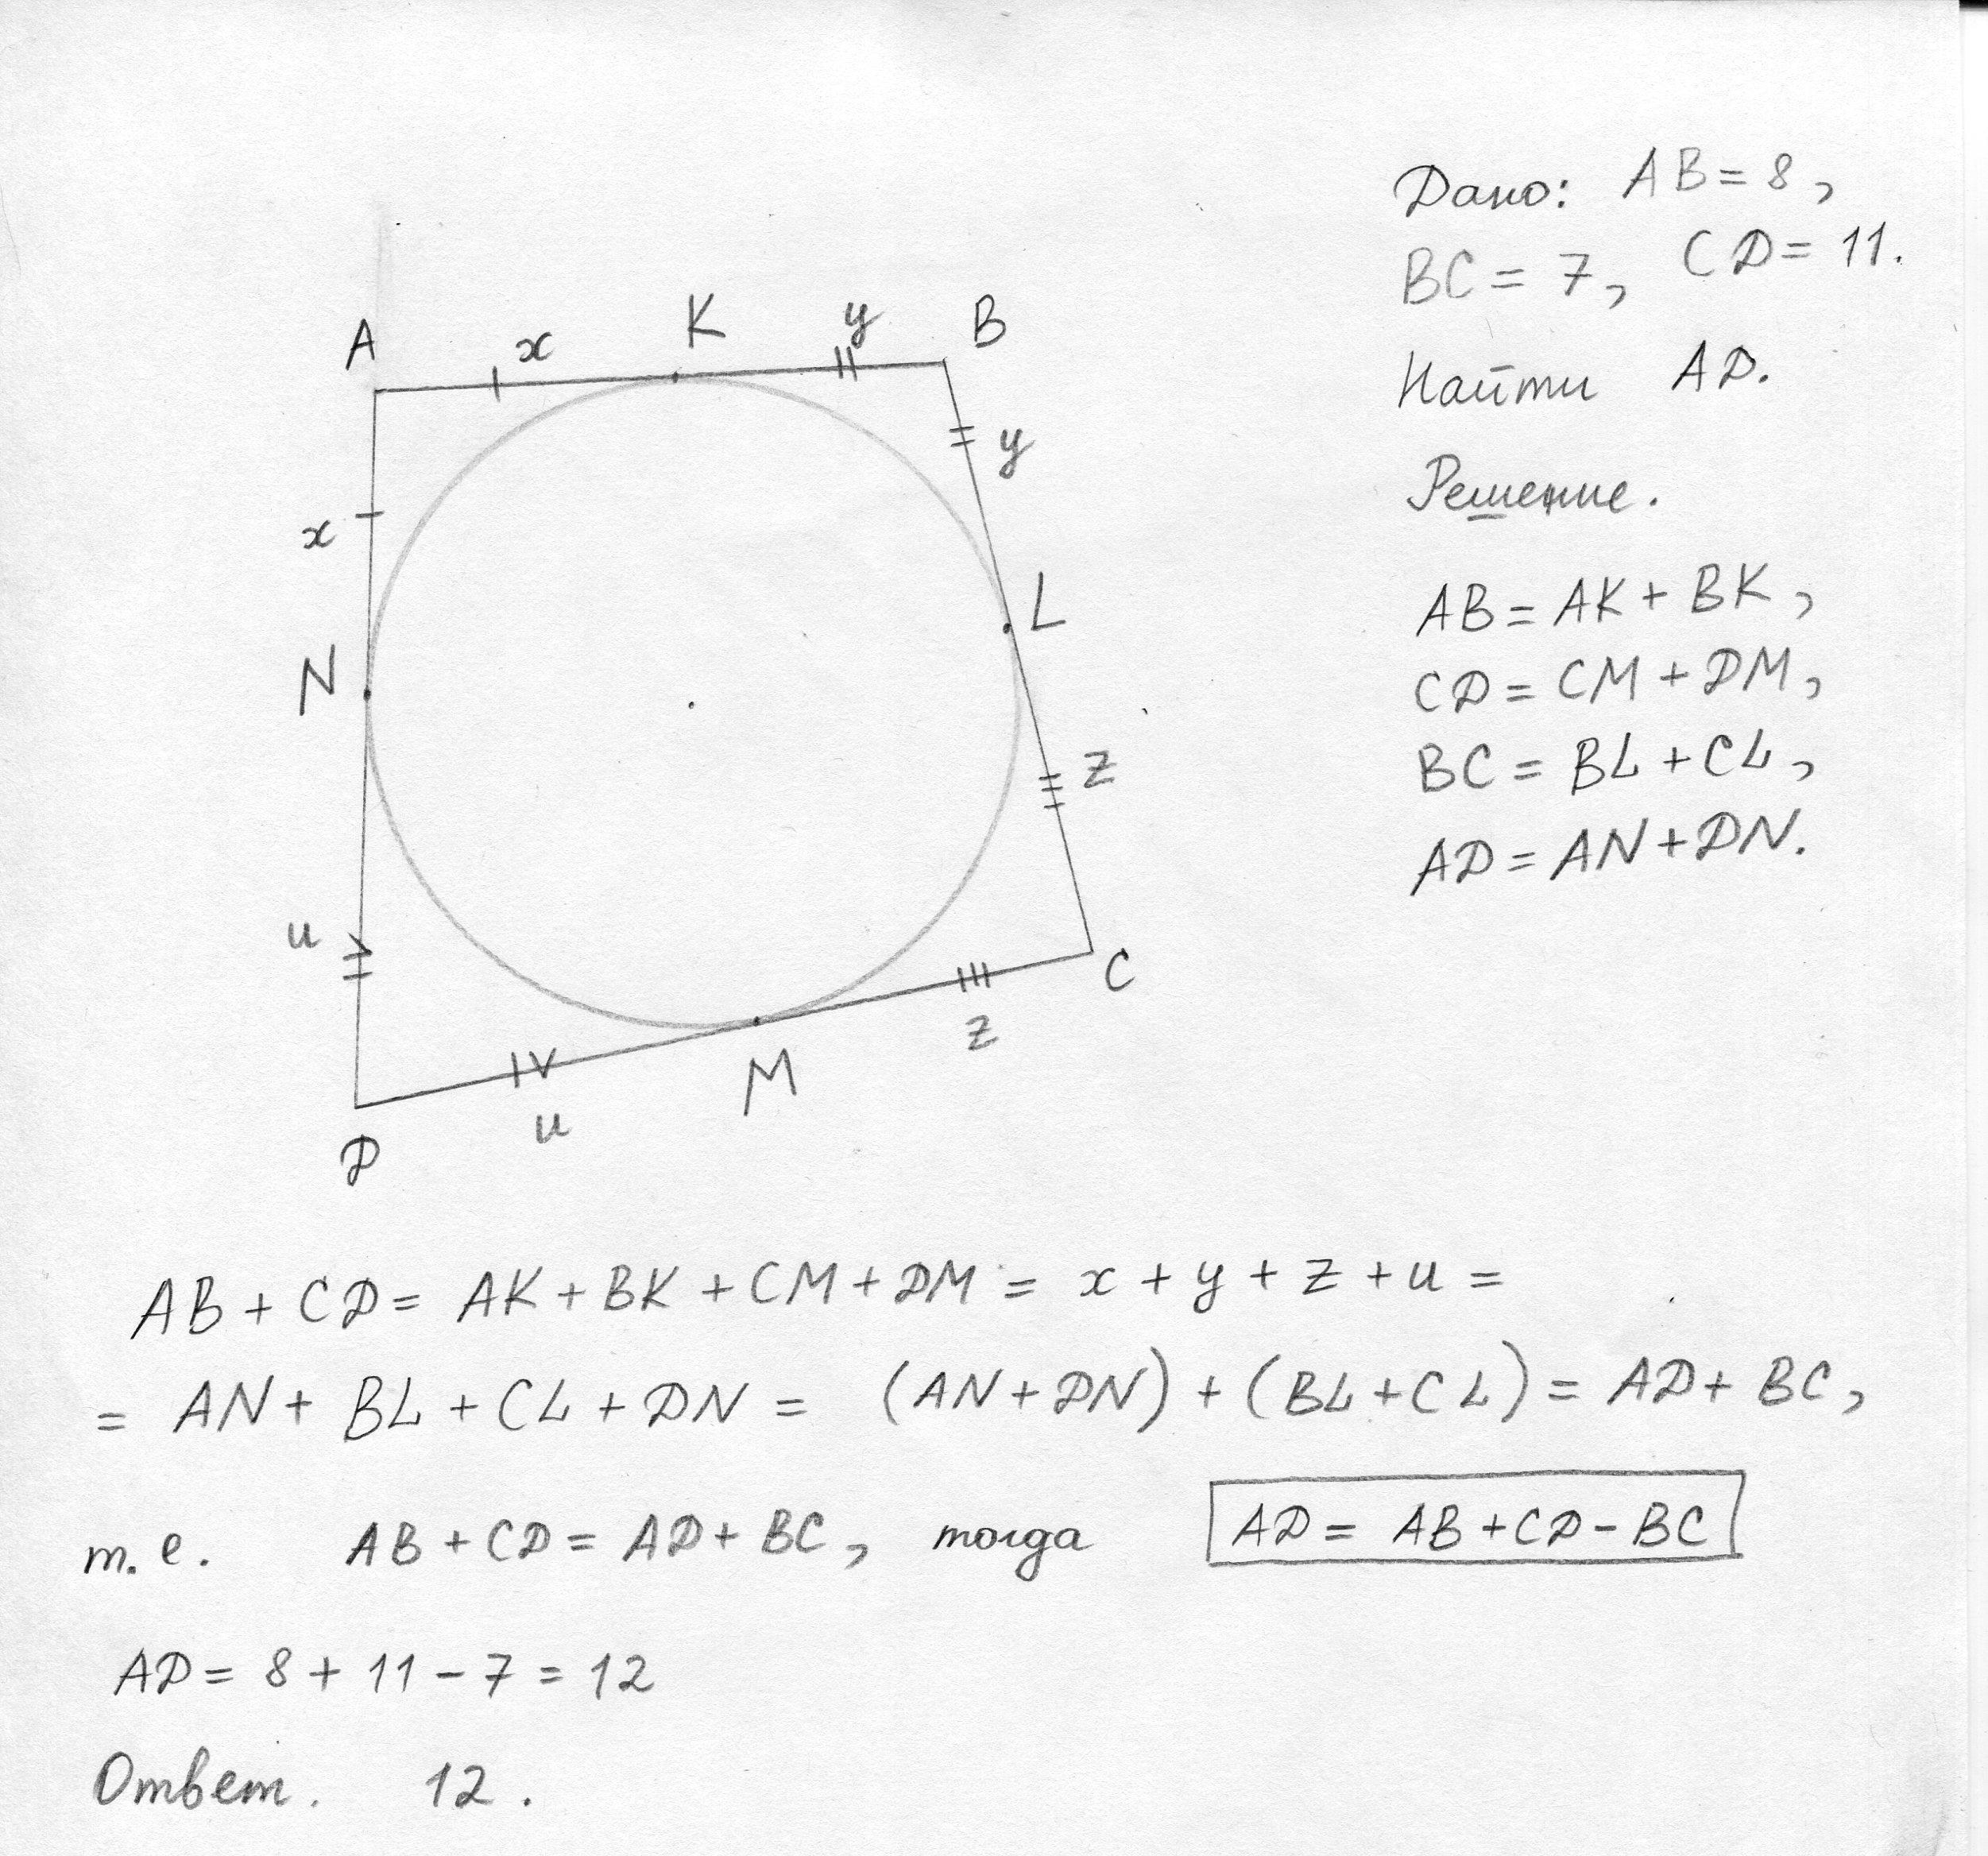 Дано: AB = 8,
BC = 7, CD = 11.
Найти AD.
Решение.
AB = AK + BK,
CD = CM + DM,
BC = BL + CL,
AD = AN + DN.
A x K y B
x y
N L
z
u
C
z
M
u
D
AB + CD = AK + BK + CM + DM = x + y + z + u =
= AN + BL + CL + DN = (AN + DN) + (BL + CL) = AD + BC,
т. е. AB + CD = AD + BC, тогда AD = AB + CD - BC
AD = 8 + 11 - 7 = 12
Ответ. 12.